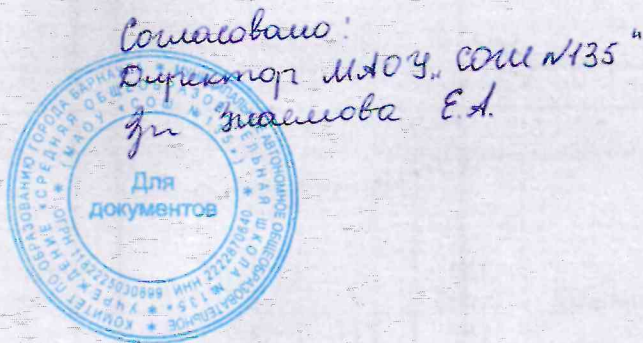 Согласовано:
Директор МАОУ „СОШ №135"
Е.А.
КОМИТЕТ ПО ОБРАЗОВАНИЮ ГОРОДА БАРНАУЛА
АВТОНОМНОЕ ОБЩЕОБРАЗОВАТЕЛЬНОЕ
УЧРЕЖДЕНИЕ "СРЕДНЯЯ ОБЩЕОБРАЗОВАТЕЛЬНАЯ ШКОЛА №135"
(МАОУ "СОШ №135")
ОГРН ИНН
Для
документов